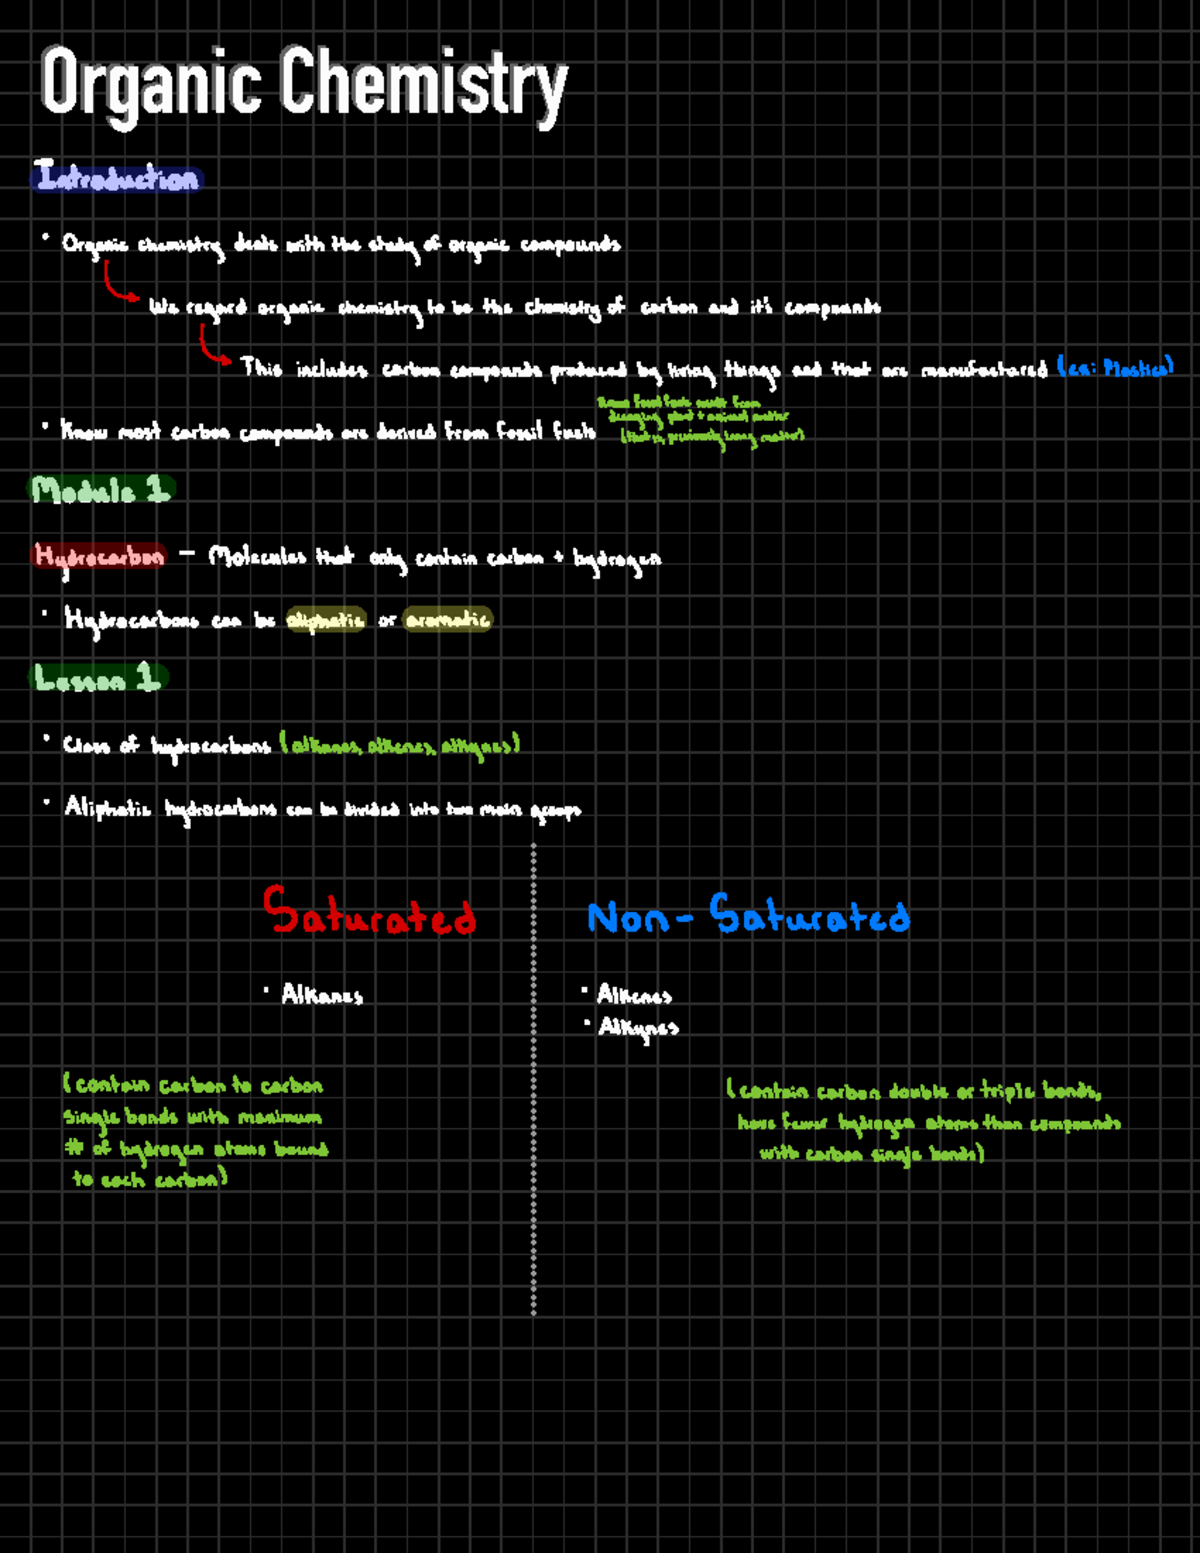 Organic Chemistry
Introduction
• Organic chemistry deals with the study of organic compounds
We regard organic chemistry to be the chemistry of carbon and it's compounds
This includes carbon compounds produced by living things and that are manufactured (ex: Plastics)
fossil fuels made from
decaying plant + animal matter
• Know most carbon compounds are derived from fossil fuels
(that is, previously living matter)
Module 1
Hydrocarbon – Molecules that only contain carbon + hydrogen
• Hydrocarbons can be aliphatic or aromatic
Lesson 1
• Class of hydrocarbons (alkanes, alkenes, alkynes)
• Aliphatic hydrocarbons can be divided into two main groups
Saturated
Non-Saturated
• Alkanes
• Alkenes
• Alkynes
(contain carbon to carbon
single bonds with maximum
# of hydrogen atoms bound
to each carbon)
(contain carbon double or triple bonds,
have fewer hydrogen atoms than compounds
with carbon single bonds)